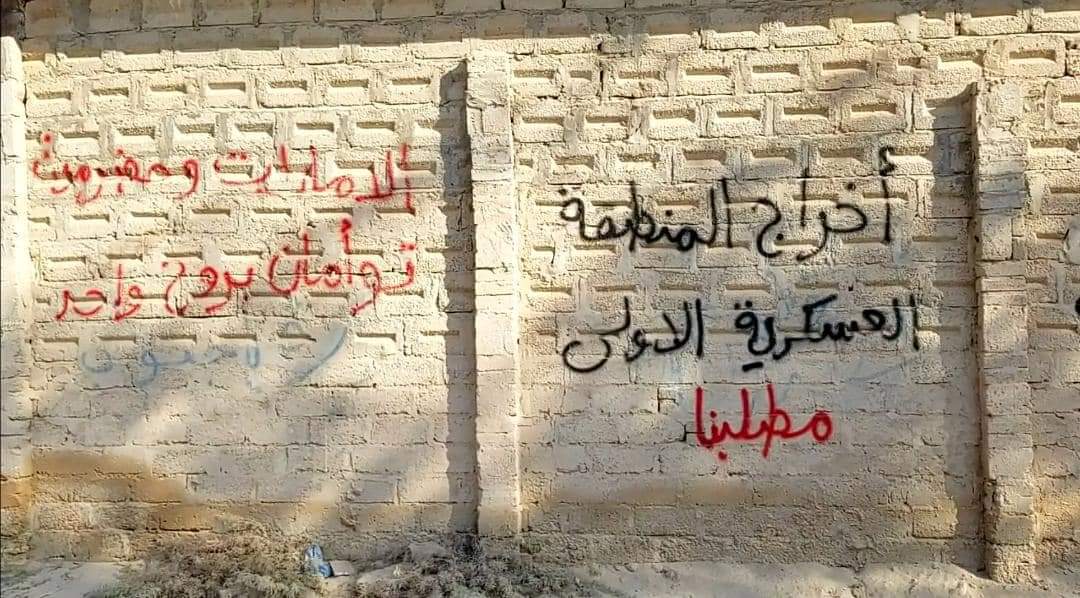 أخراج المنطقة
العسكرية الاولى
مطلبنا
الامارات وحضرموت
توأمان بروح واحد